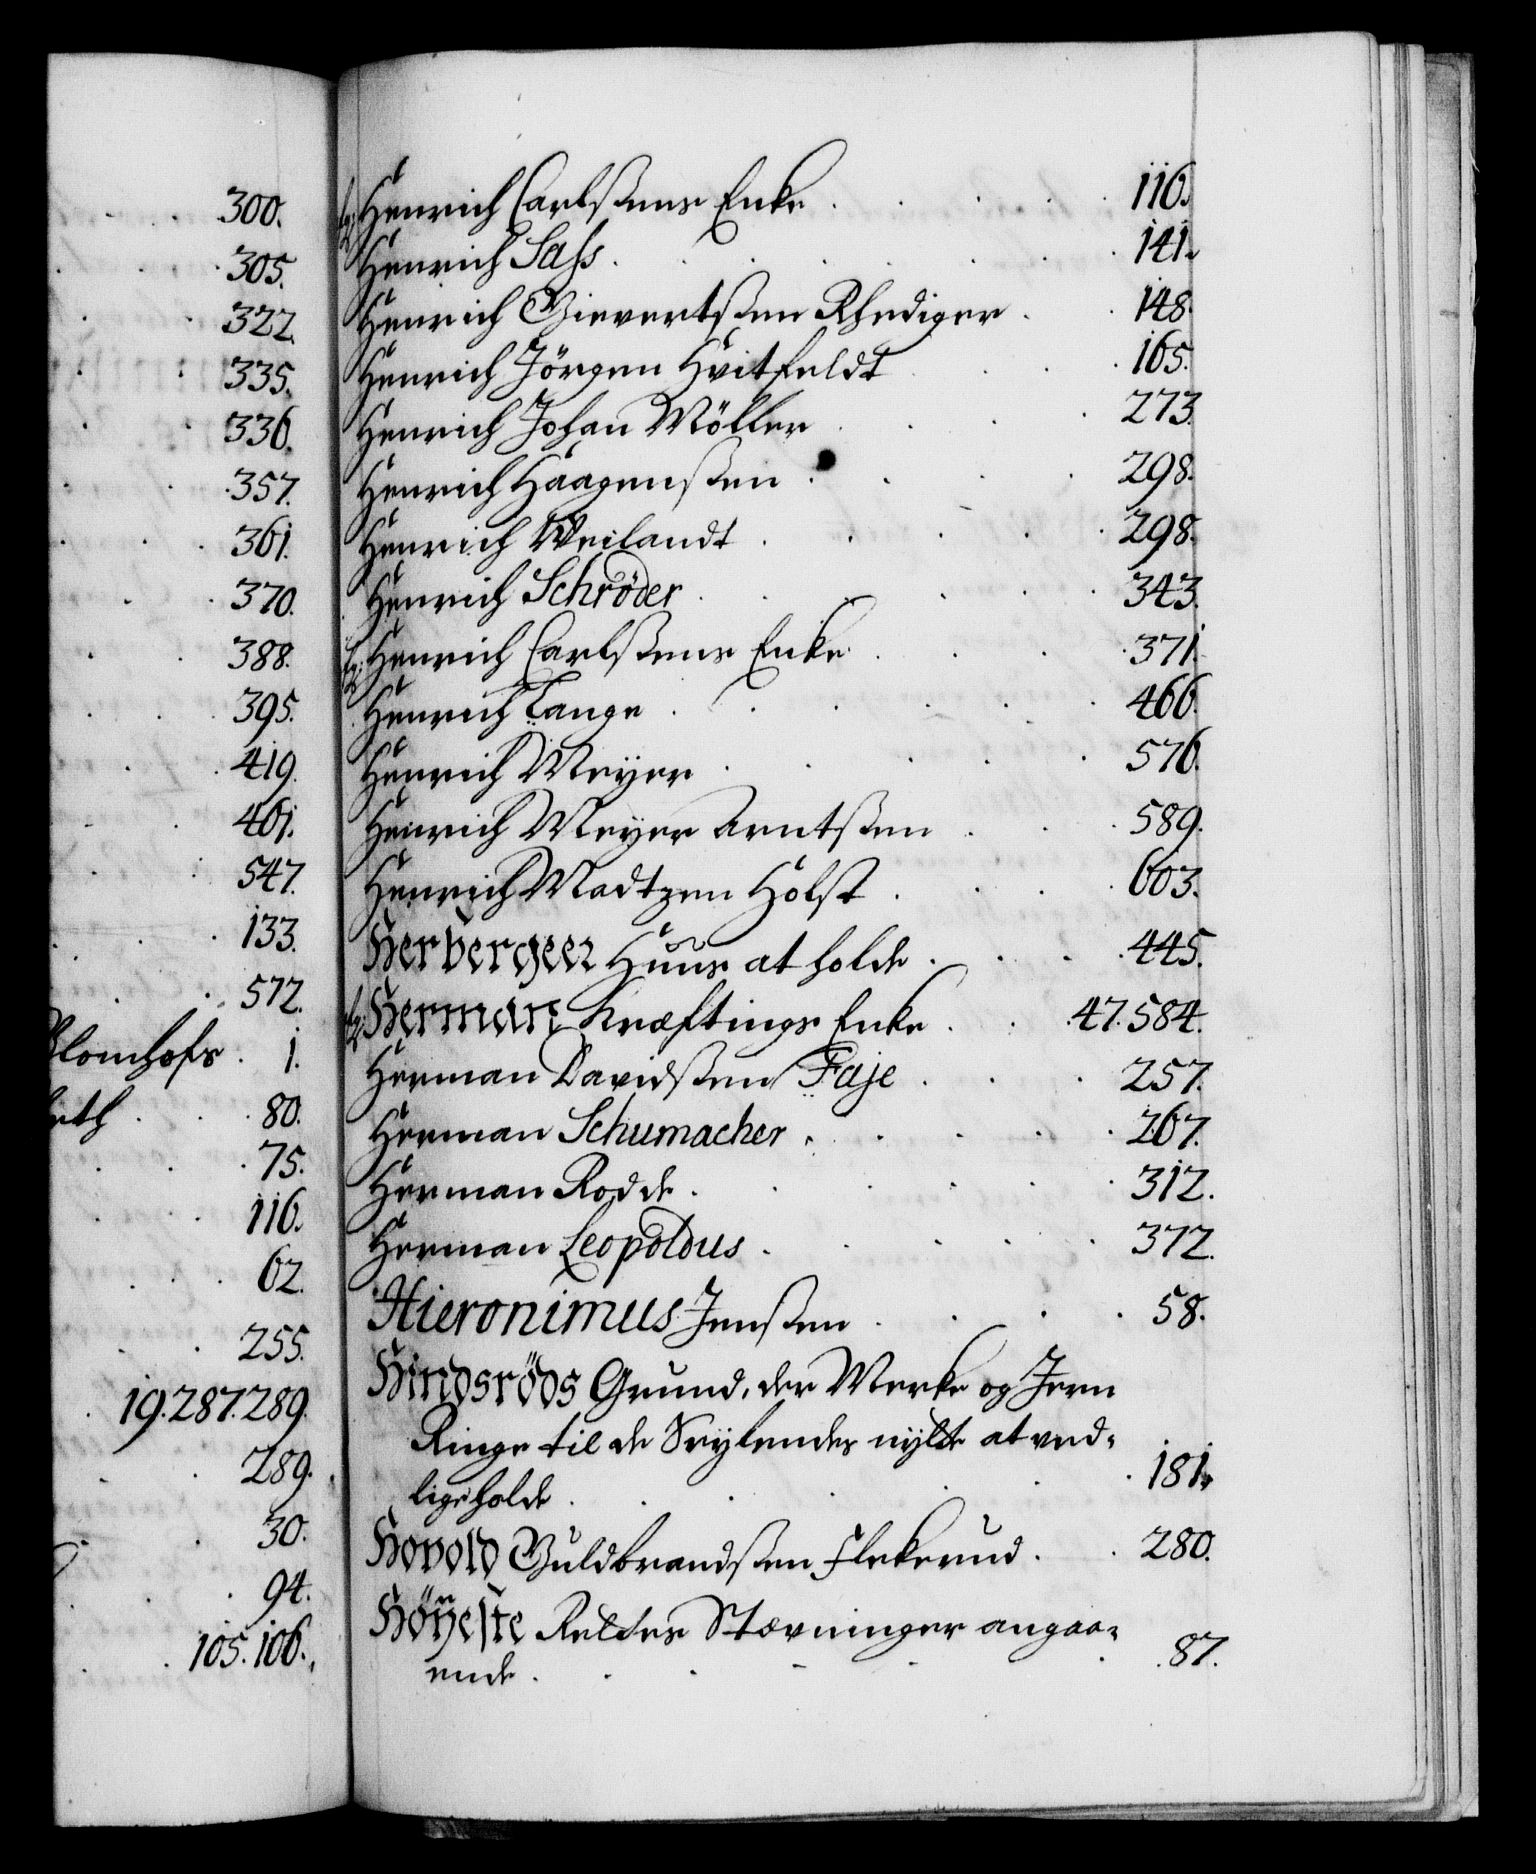 300.
305.
322.
335.
336.
357.
361.
370.
388.
395.
419.
461.
547.
133.
572.
Blomhofs . 1.
80.
75.
116.
62.
255.
19.287.289.
289.
30.
94.
105.106.
Henrich Carlssens Enke . 116.
Henrich Sass . 141.
Henrich Gievertssen Rhediger . 148.
Henrich Jörgen Hvitfeldt . 165.
Henrich Johan Möller . 273.
Henrich Haagenssen . 298.
Henrich Weilandt . 298.
Henrich Schrøder . 343.
Henrich Carlssens Enke . 371.
Henrich Lange . 466.
Henrich Meyer . 576.
Henrich Meyer Arntssen . 589.
Henrich Madtzen Holst . 603.
Herbergeer Huus at holde . 445.
Herman Kræftings Enke . 47.584.
Herman Davidssen Faje . 257.
Herman Schumacher . 267.
Herman Rodde . 312.
Herman Leopoldus . 372.
Hieronimus Jenssen . 58.
Hindsröds Grund, der Merke og Jern
Ringe til de Seylendes nytte at ved-
ligeholde . 181.
Hovold Guldbrandssen Flekerud . 280.
Höyeste Rettes Stævninger angaa-
ende . 87.